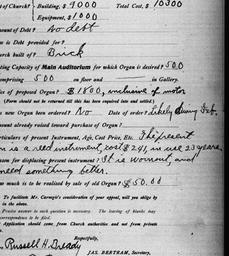 of Church? { Building, $ 9000 Total Cost, $ 10300
Equipment, $1000
Amount of Debt? No debt
Debt provided for?
Church built of? Brick
Seating Capacity of Main Auditorium for which Organ is desired? 500
comprising 500 on floor and in Gallery.
of proposed Organ? $1800, inclusive of motor
(Form should not be returned till this has been enquired into and settled.)
new Organ been ordered? No Date of order? likely during Feb.
amount already raised toward purchase of Organ?
Particulars of present Instrument, Age, Cost Price, Etc. The present
is a reed instrument, cost $291, in use 23 years
reason for displacing present instrument? It is wornout, and
need something better.
much is to be realized by sale of old Organ? $50.00
To facilitate Mr. Carnegie's consideration of your appeal, will you oblige by
in the above.
Precise answer to each question is necessary. The leaving of blanks may
correspondence.
Application should come from Church authorities and not from private
Respectfully,
Russell H. Dready
JAS. BERTRAM, Secretary,